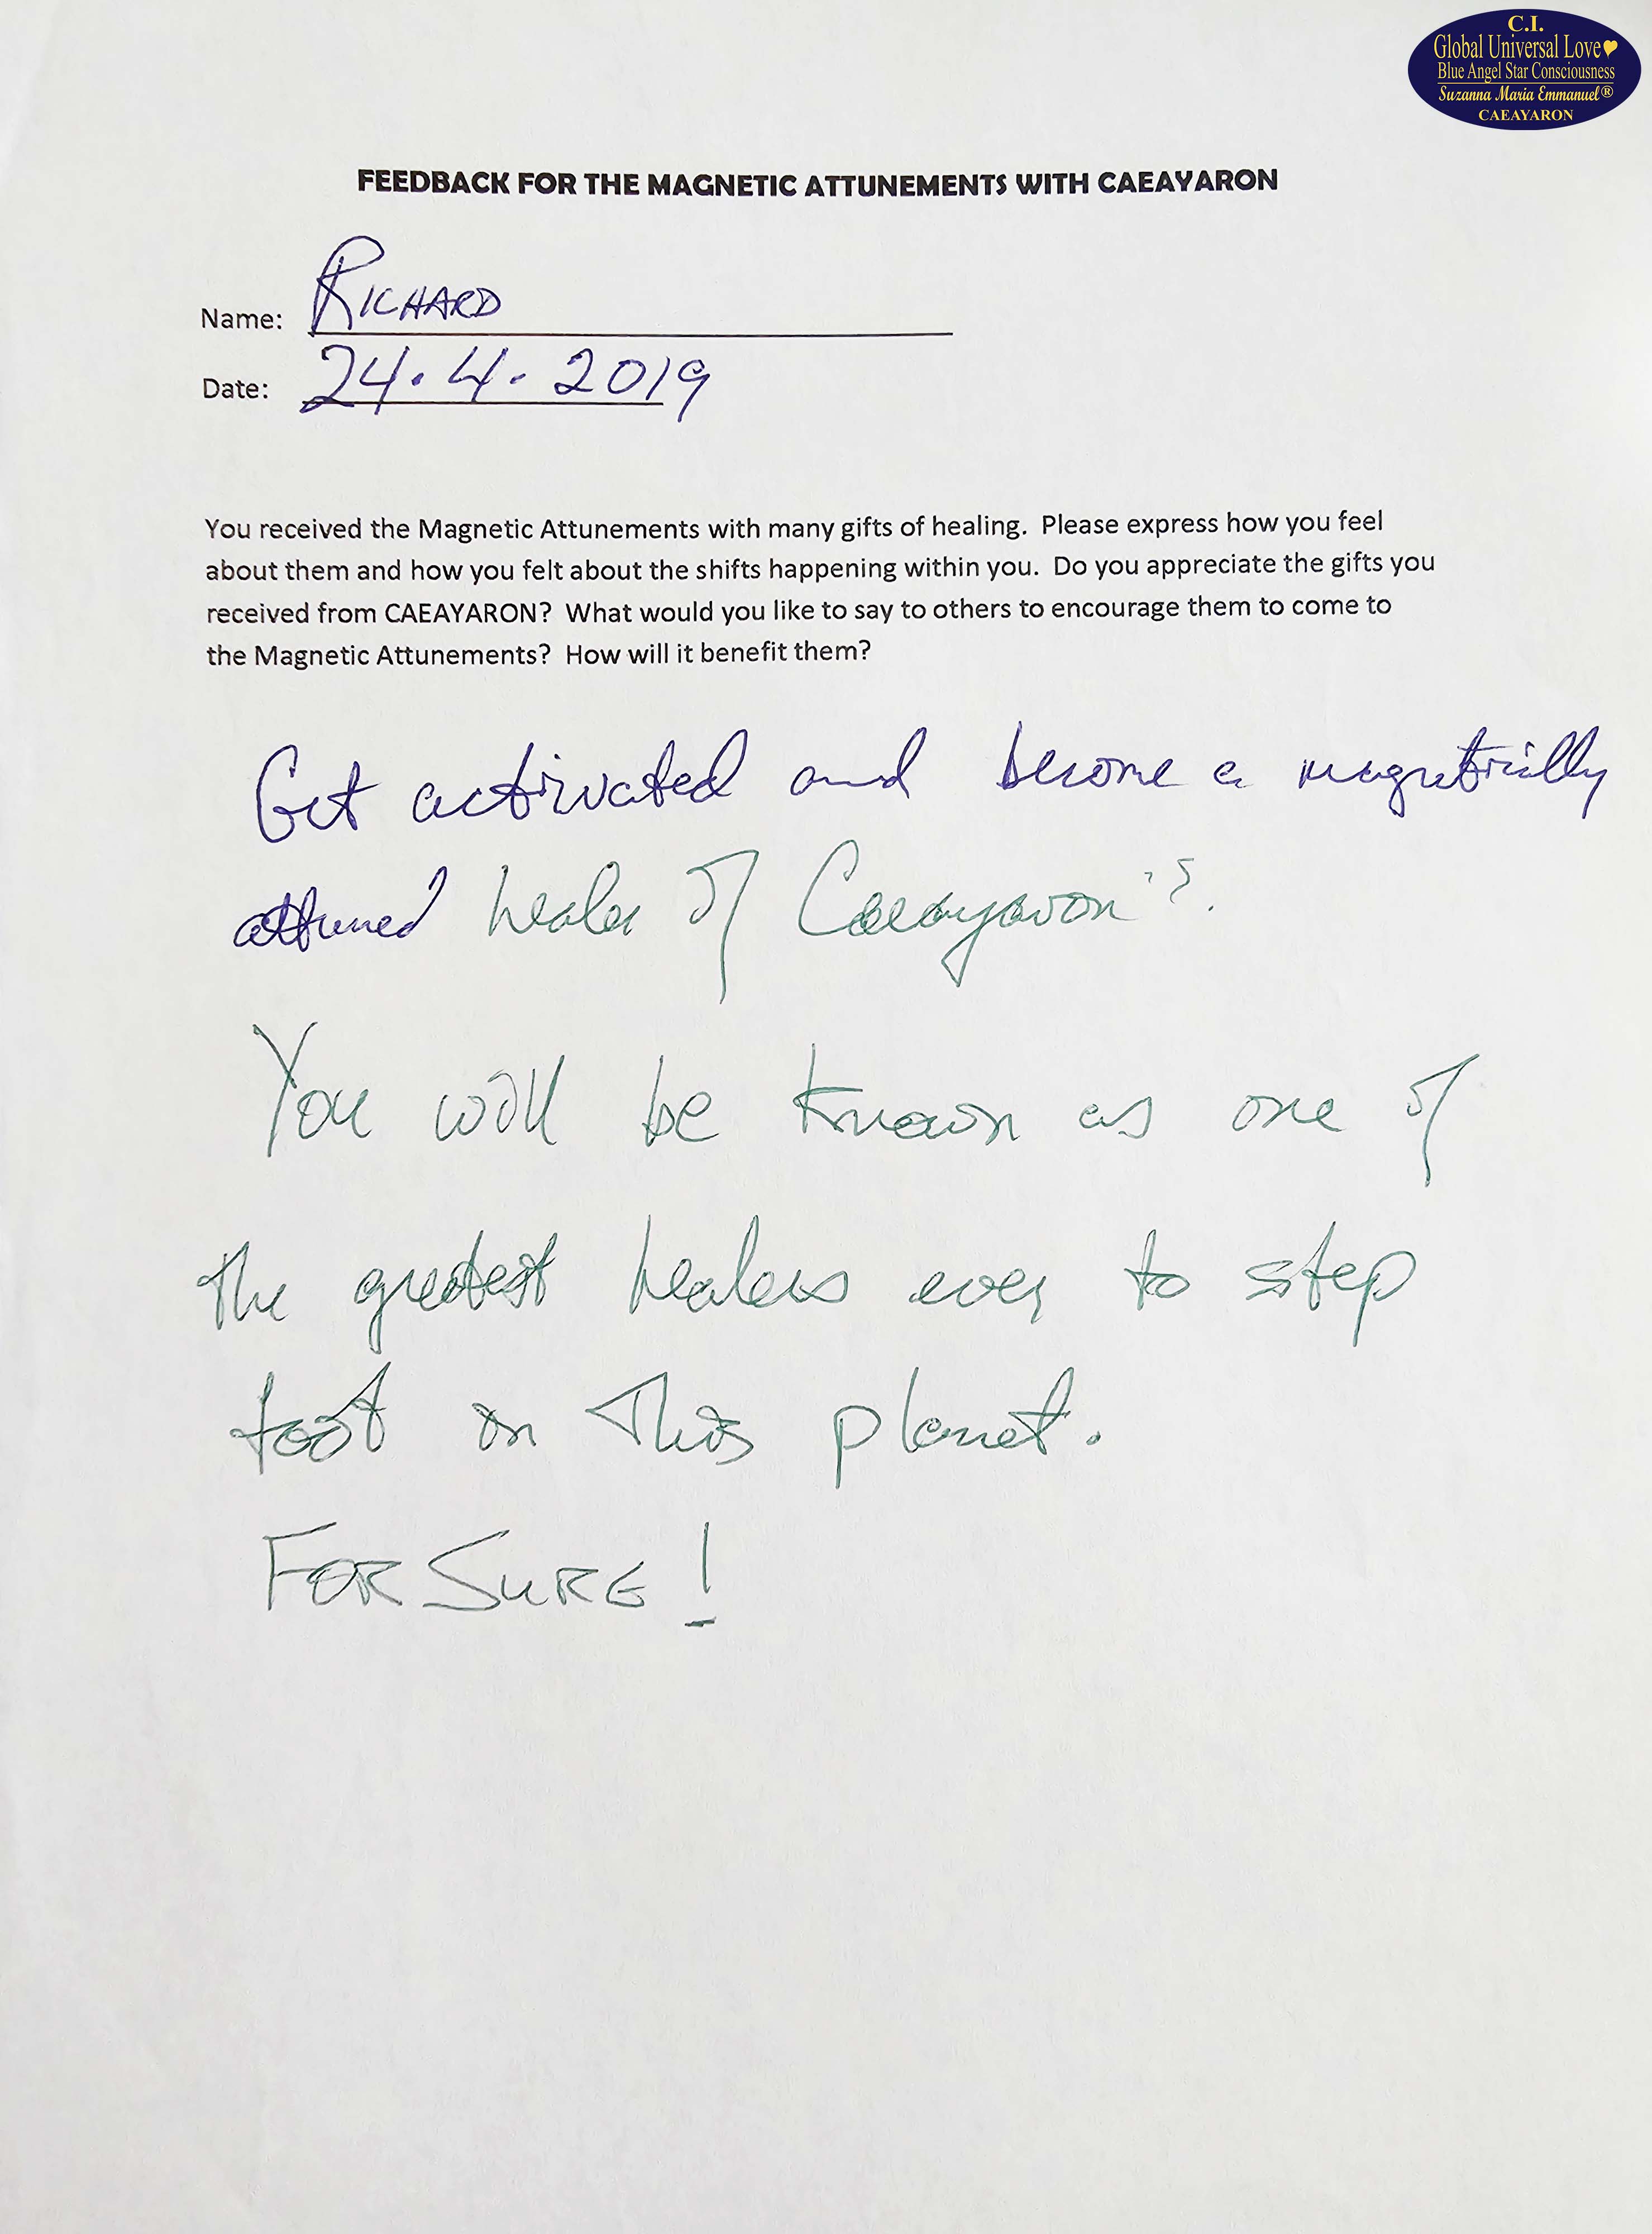 C.I.
Global Universal Love
Blue Angel Star Consciousness
Suzanna Maria Emmanuel®
CAEAYARON
FEEDBACK FOR THE MAGNETIC ATTUNEMENTS WITH CAEAYARON
Name: RICHARD
Date: 24.4.2019
You received the Magnetic Attunements with many gifts of healing. Please express how you feel
about them and how you felt about the shifts happening within you. Do you appreciate the gifts you
received from CAEAYARON? What would you like to say to others to encourage them to come to
the Magnetic Attunements? How will it benefit them?
Get activated and become a magnetically
attuned healer of Caeayaron's.
You will be known as one of
the greatest healers ever to step
foot on this planet.
FOR SURE!